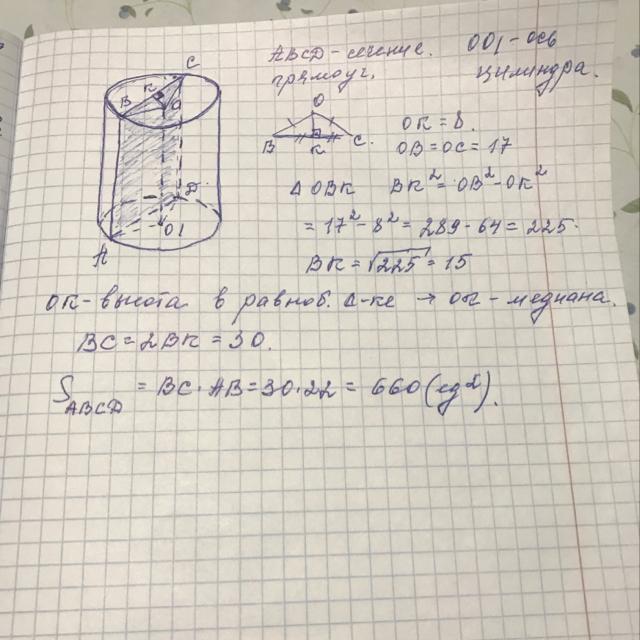 ABCD - сечение. OO1 - ось
прямоуг. цилиндра.
C
K
B
O
D
O1
A
O
B K C.
OK = 8.
OB = OC = 17
Δ OBK BK² = OB² - OK²
= 17² - 8² = 289 - 64 = 225.
BK = √225 = 15
OK - высота в равноб. Δ-ке → OK - медиана.
BC = 2BK = 30.
S ABCD = BC · AB = 30 · 22 = 660 (ед²).